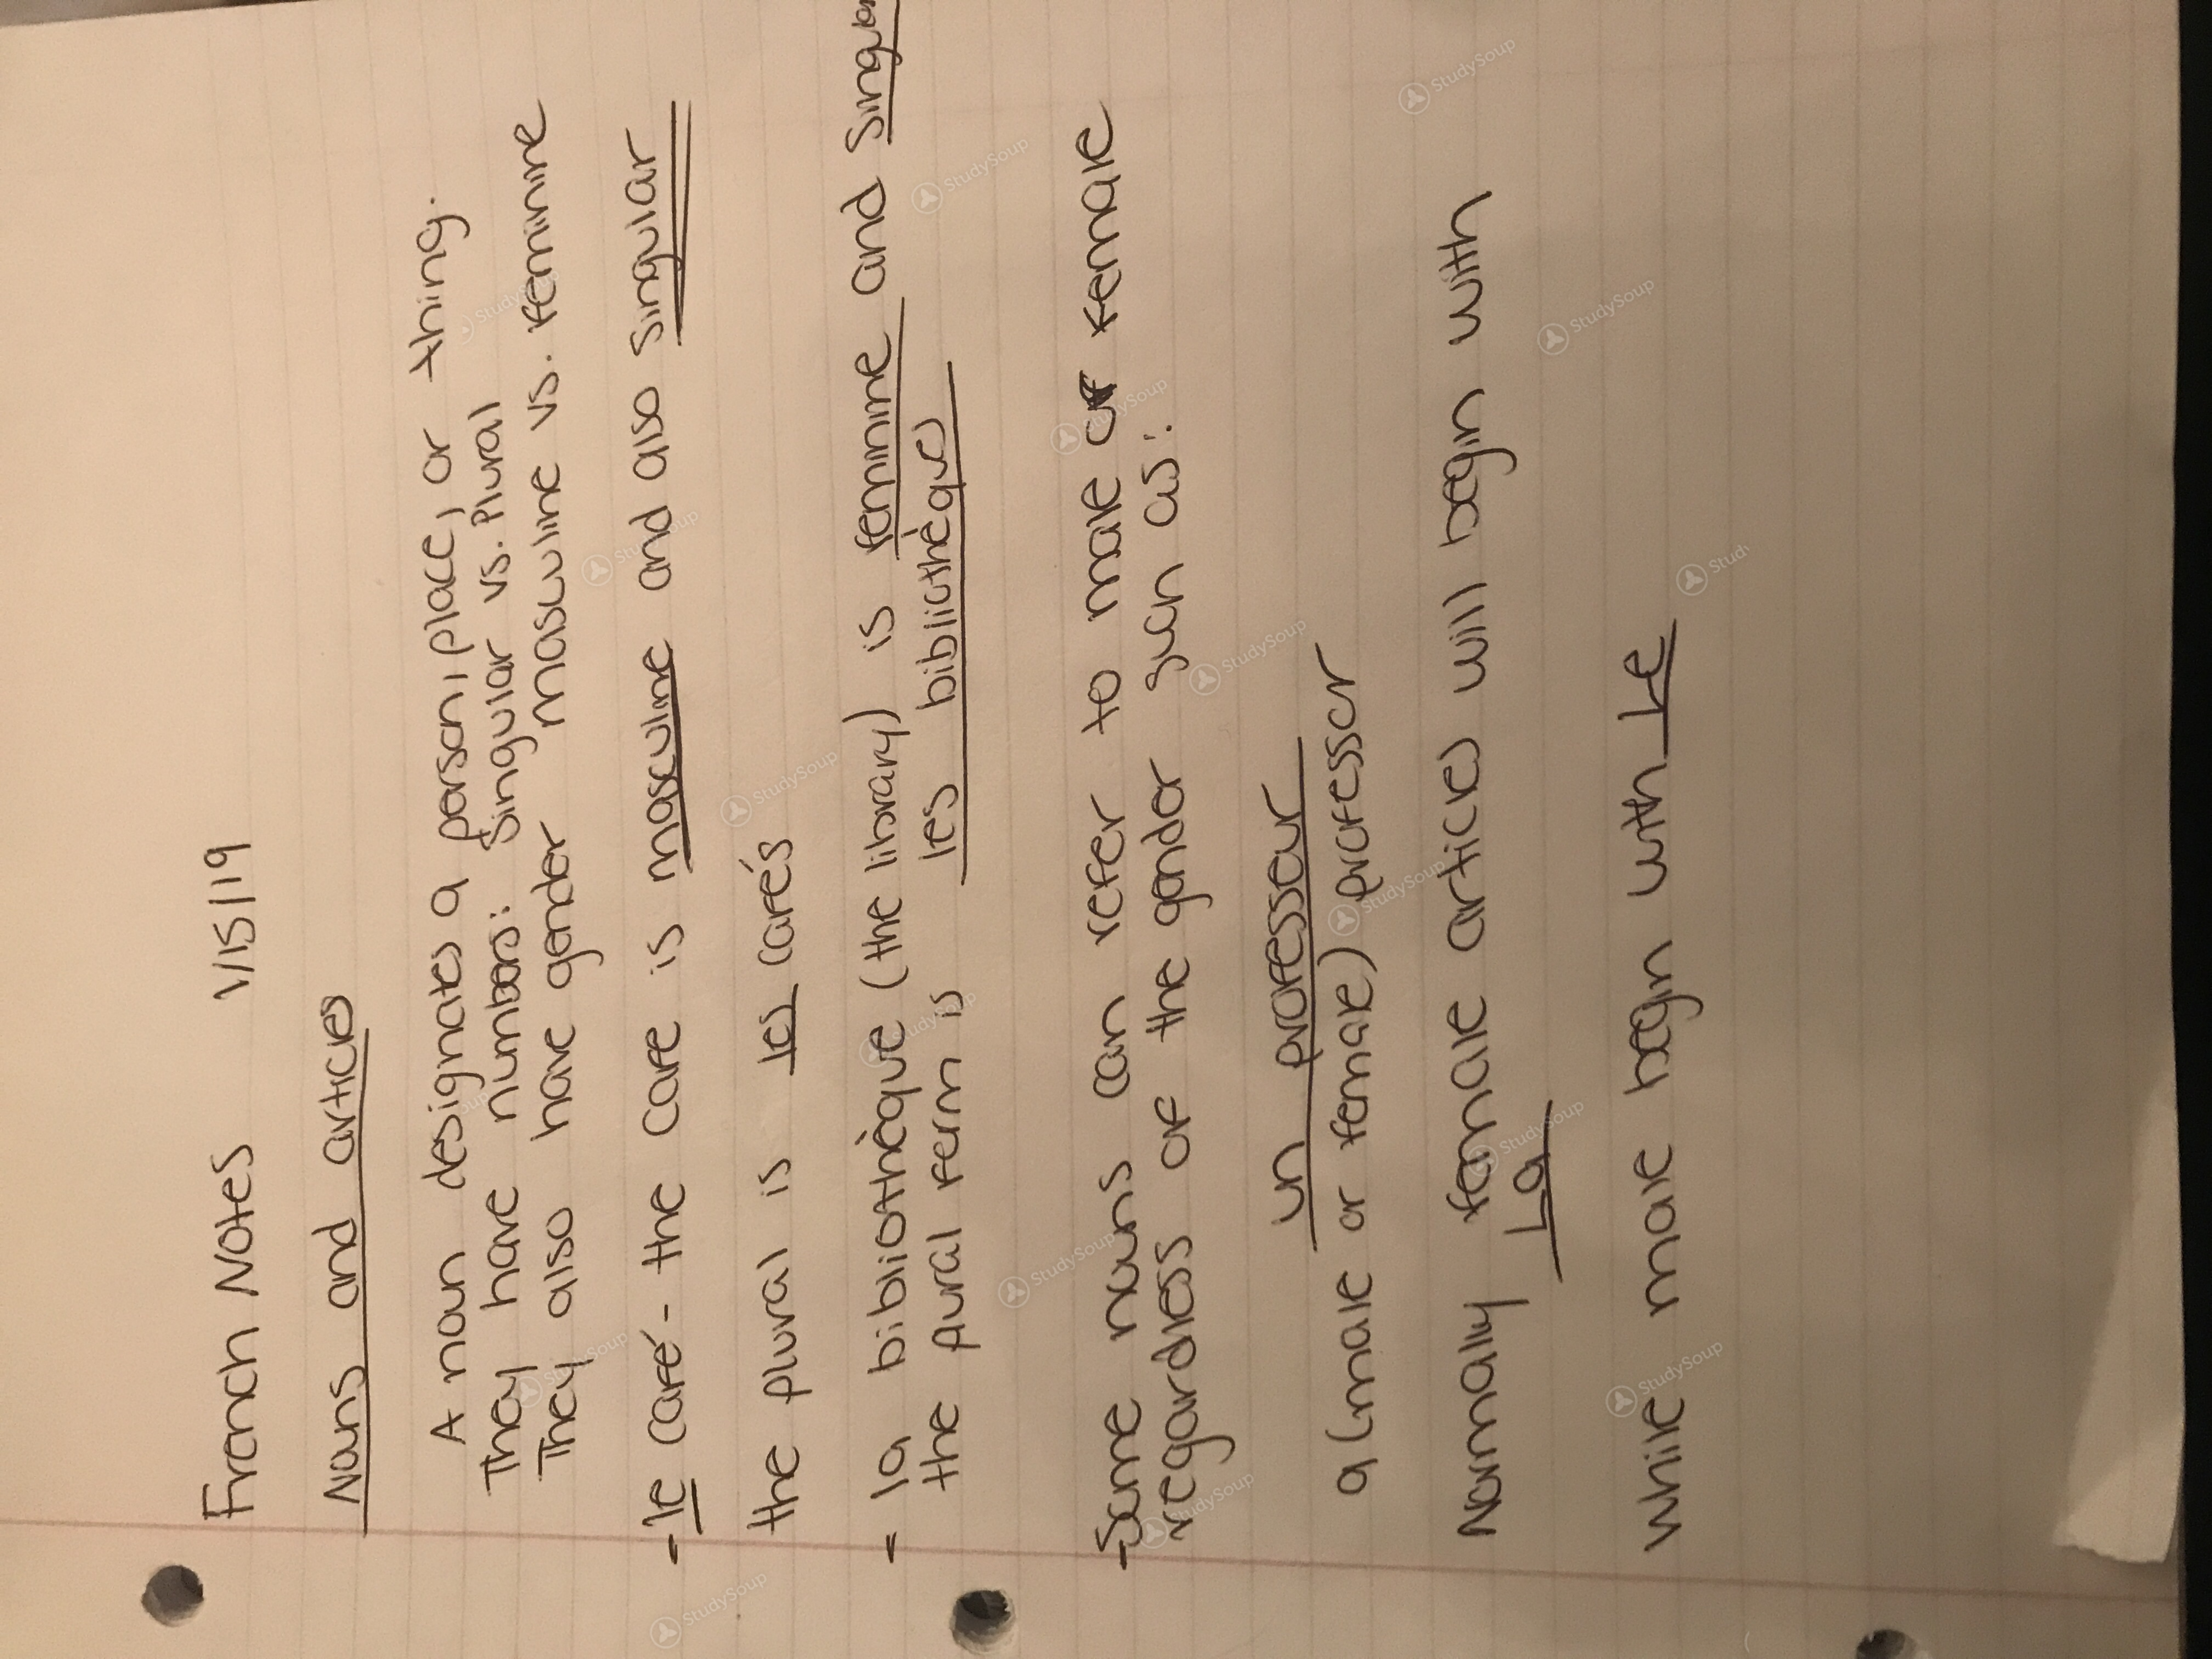 French Notes 1/15/19
Nouns and articles
A noun designates a person, place, or thing.
They have numbers: Singular vs. Plural
They also have gender masculine vs. feminine
- le café - the cafe is masculine and also singular
the plural is les cafés
- la bibliothèque (the library) is feminine and singular
the plural form is les bibliothèques
- Some nouns can refer to male or female
regardless of the gender such as:
un professeur
a (male or female) professor
Normally female articles will begin with
La
while male begin with Le
StudySoup